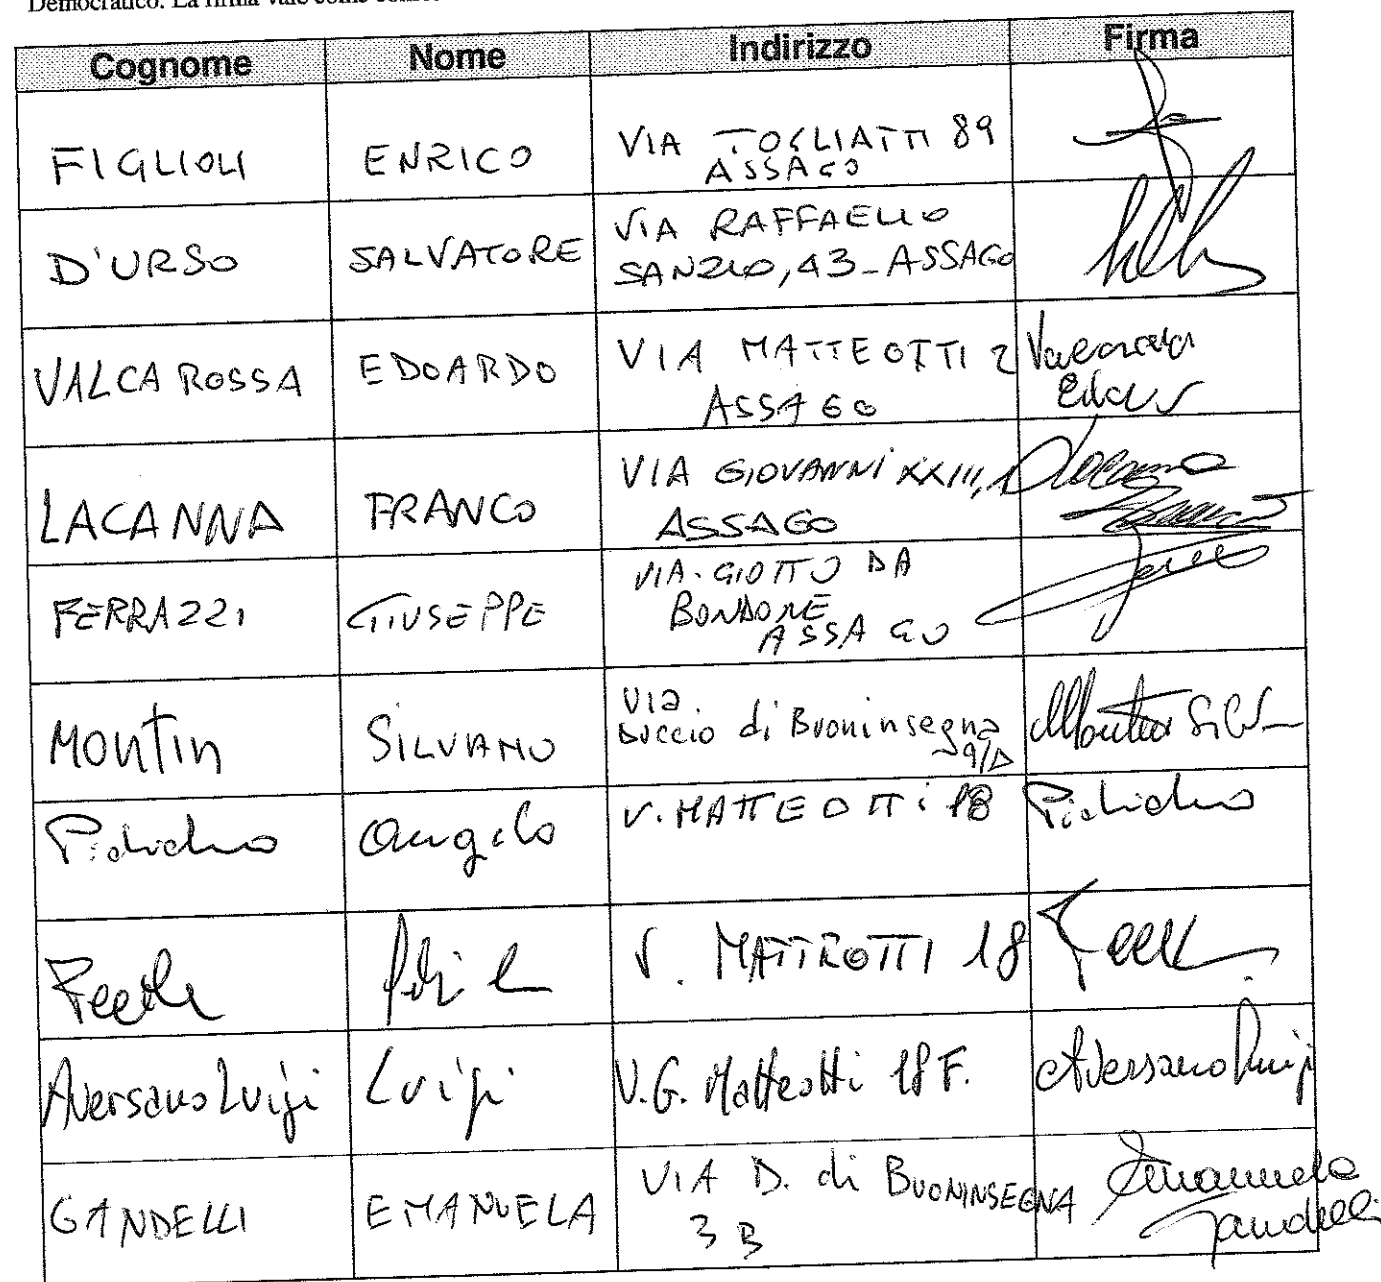 Democratico. La firma vale come
Cognome Nome Indirizzo Firma
FIGLIOLI ENRICO VIA TOGLIATTI 89
ASSAGO
D'URSO SALVATORE VIA RAFFAELLO
SANZIO, 43 - ASSAGO
VALCAROSSA EDOARDO VIA MATTEOTTI 2
ASSAGO
LACANNA FRANCO VIA GIOVANNI XXIII, Lacanna
ASSAGO Franco
FERRAZZI GIUSEPPE VIA. GIOTTO DA
BONDONE
ASSAGO
Montin SILVANO VIA.
Duccio di Buoninsegna Montin Silv
9/D
Angelo V. MATTEOTTi 18
V. MATTEOTTI 18
Aversano Luigi Luigi V.G. Matteotti 18 F. Aversano Luigi
GANDELLI EMANUELA VIA D. di BUONINSEGNA Emanuela
3 B Gandelli